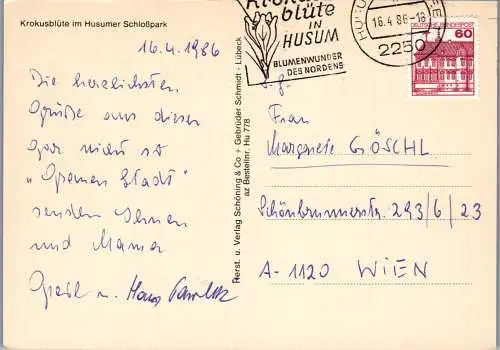 Krokusblüte im Husumer Schloßpark
16.4.1986
Die herzlichsten
Grüße aus dieser
gar nicht so
"Grauen Stadt"
senden Ihnen
und Mama
Krokus
blüte
IN
HUSUM
BLUMENWUNDER
DES NORDENS
HUSUM
16.4.86-18
2250
DEUTSCHE BUNDESPOST
60
Frau
Margarete GÖSCHL
Schönbrunnerstr. 293/6/23
A-1120 WIEN
Herst. u. Verlag Schöning & Co + Gebrüder Schmidt - Lübeck
az Bestellnr. Hu 778